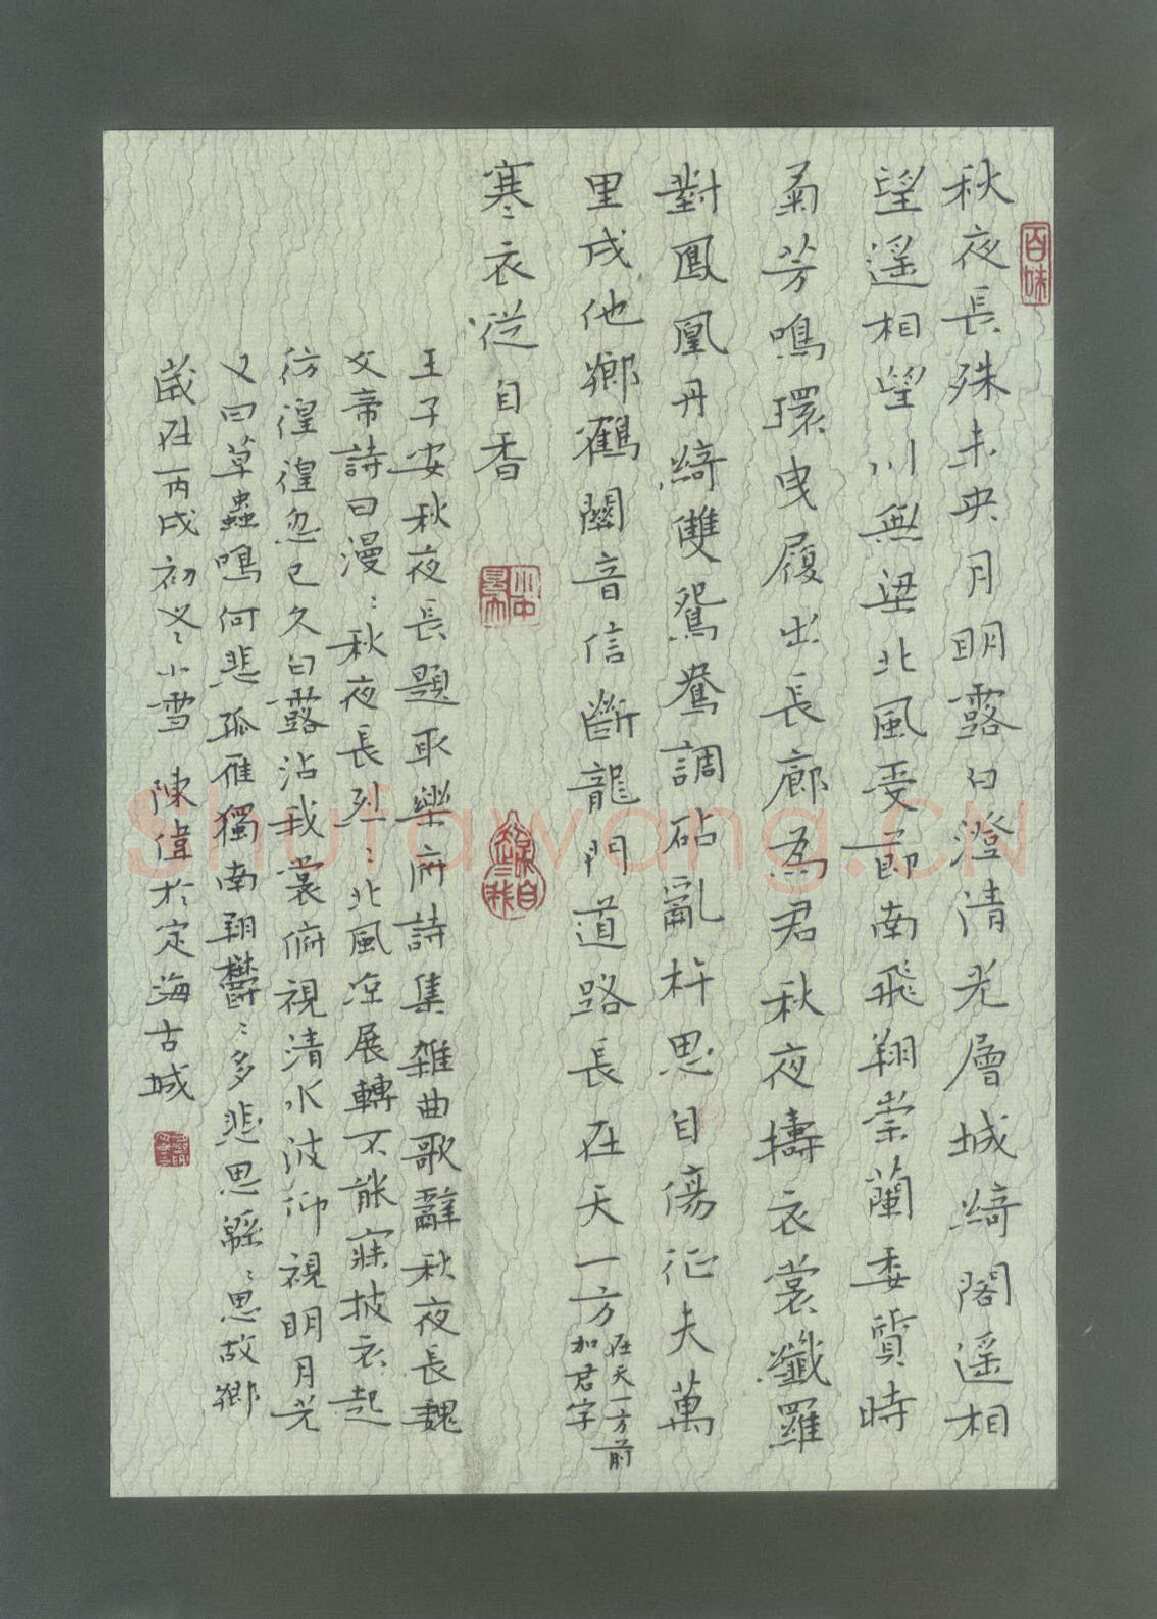 秋夜長殊未央月明露白澄清光層城綺閣遥相
望遥相望川無梁北風受節南飛翔崇蘭委質時
菊芳鳴環曳履出長廊為君秋夜擣衣裳纖羅
對鳳凰丹綺雙鴛鴦調砧亂杵思自傷征夫萬
里戍他鄉鶴關音信斷龍門道路長在天一方
在天一方前
加君字
寒:衣從自香
王子安秋夜長題取樂府詩集雜曲歌辭秋夜長魏
文帝詩曰漫:秋夜長烈:北風涼展轉不能寐披衣起
彷徨徨忽已久白露沾我裳俯視清水波仰視明月光
又曰草蟲鳴何悲孤雁獨南翔鬱:多悲思緜:思故鄉
歲在丙戌初冬小雪 陳偉於定海古城
百味
Shufawang.CN